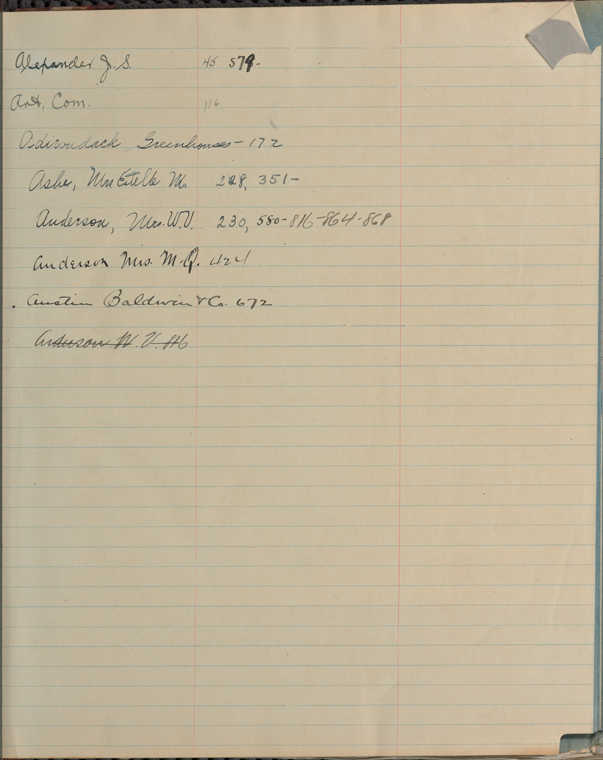 Alexander J. S. 45 579-
Art, Com. 116
Adirondack Greenhouses - 172
Ashe, Mrs Estelle M. 228, 351-
Anderson, Mrs. W.V. 230, 580-816-864-868
Anderson Mrs. M.Q. 424
Austin Baldwin & Co. 672
Anderson W. V. 816